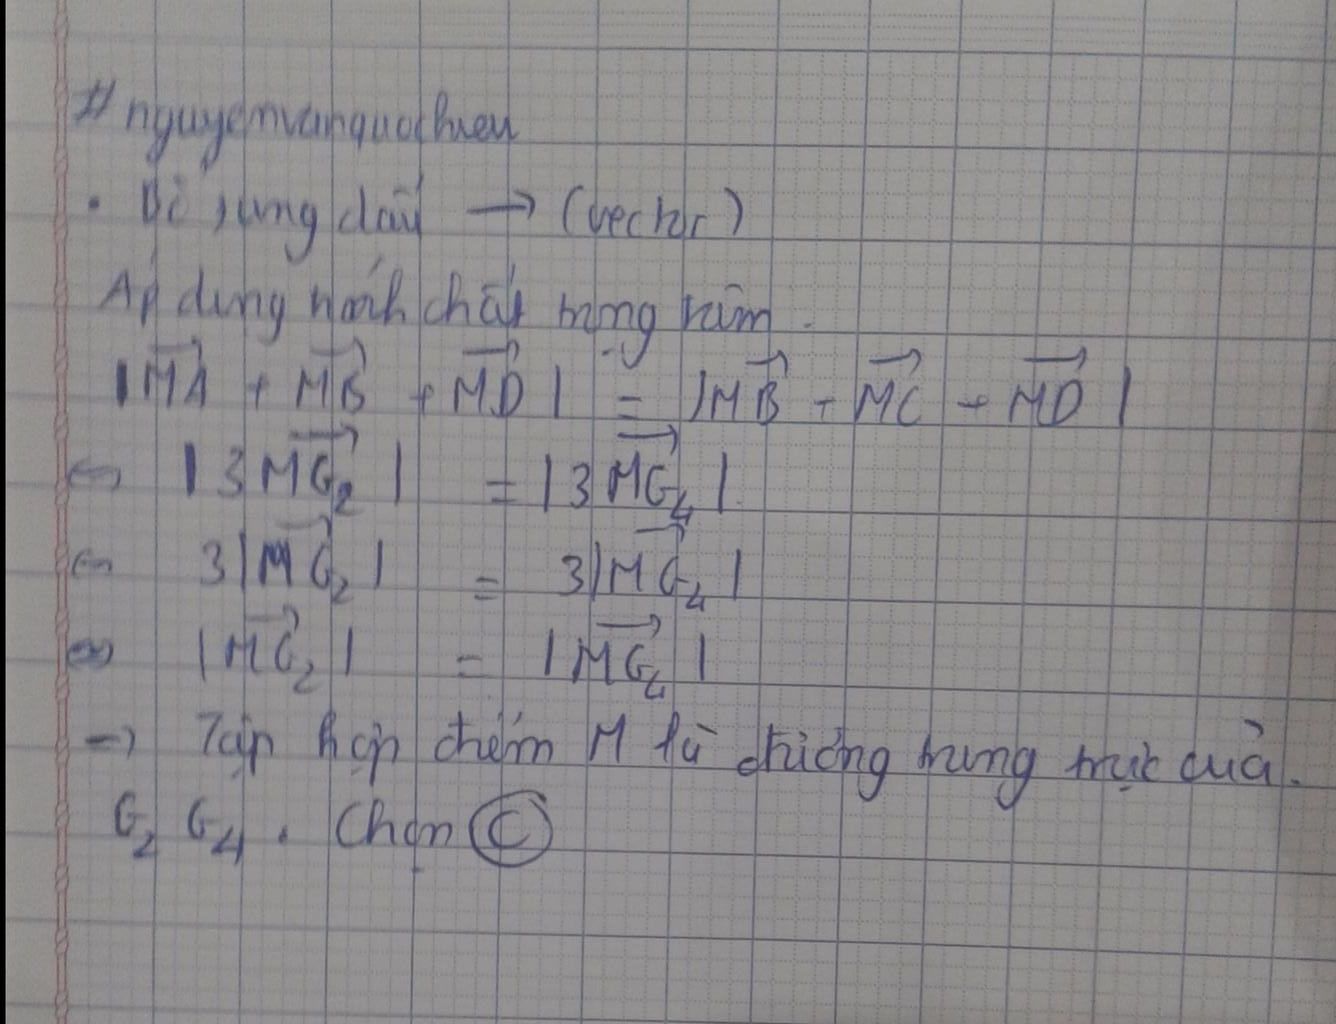 # nguyenvanquochieu
• Bổ sung dấu → (vector)
Áp dụng tính chất trọng tâm.
|MA + MB + MD| = |MB + MC + MD|
⇔ |3MG₂| = |3MG₄|
⇔ 3|MG₂| = 3|MG₄|
⇔ |MG₂| = |MG₄|
→ Tập hợp điểm M là đường trung trực của
G₂G₄. Chọn C